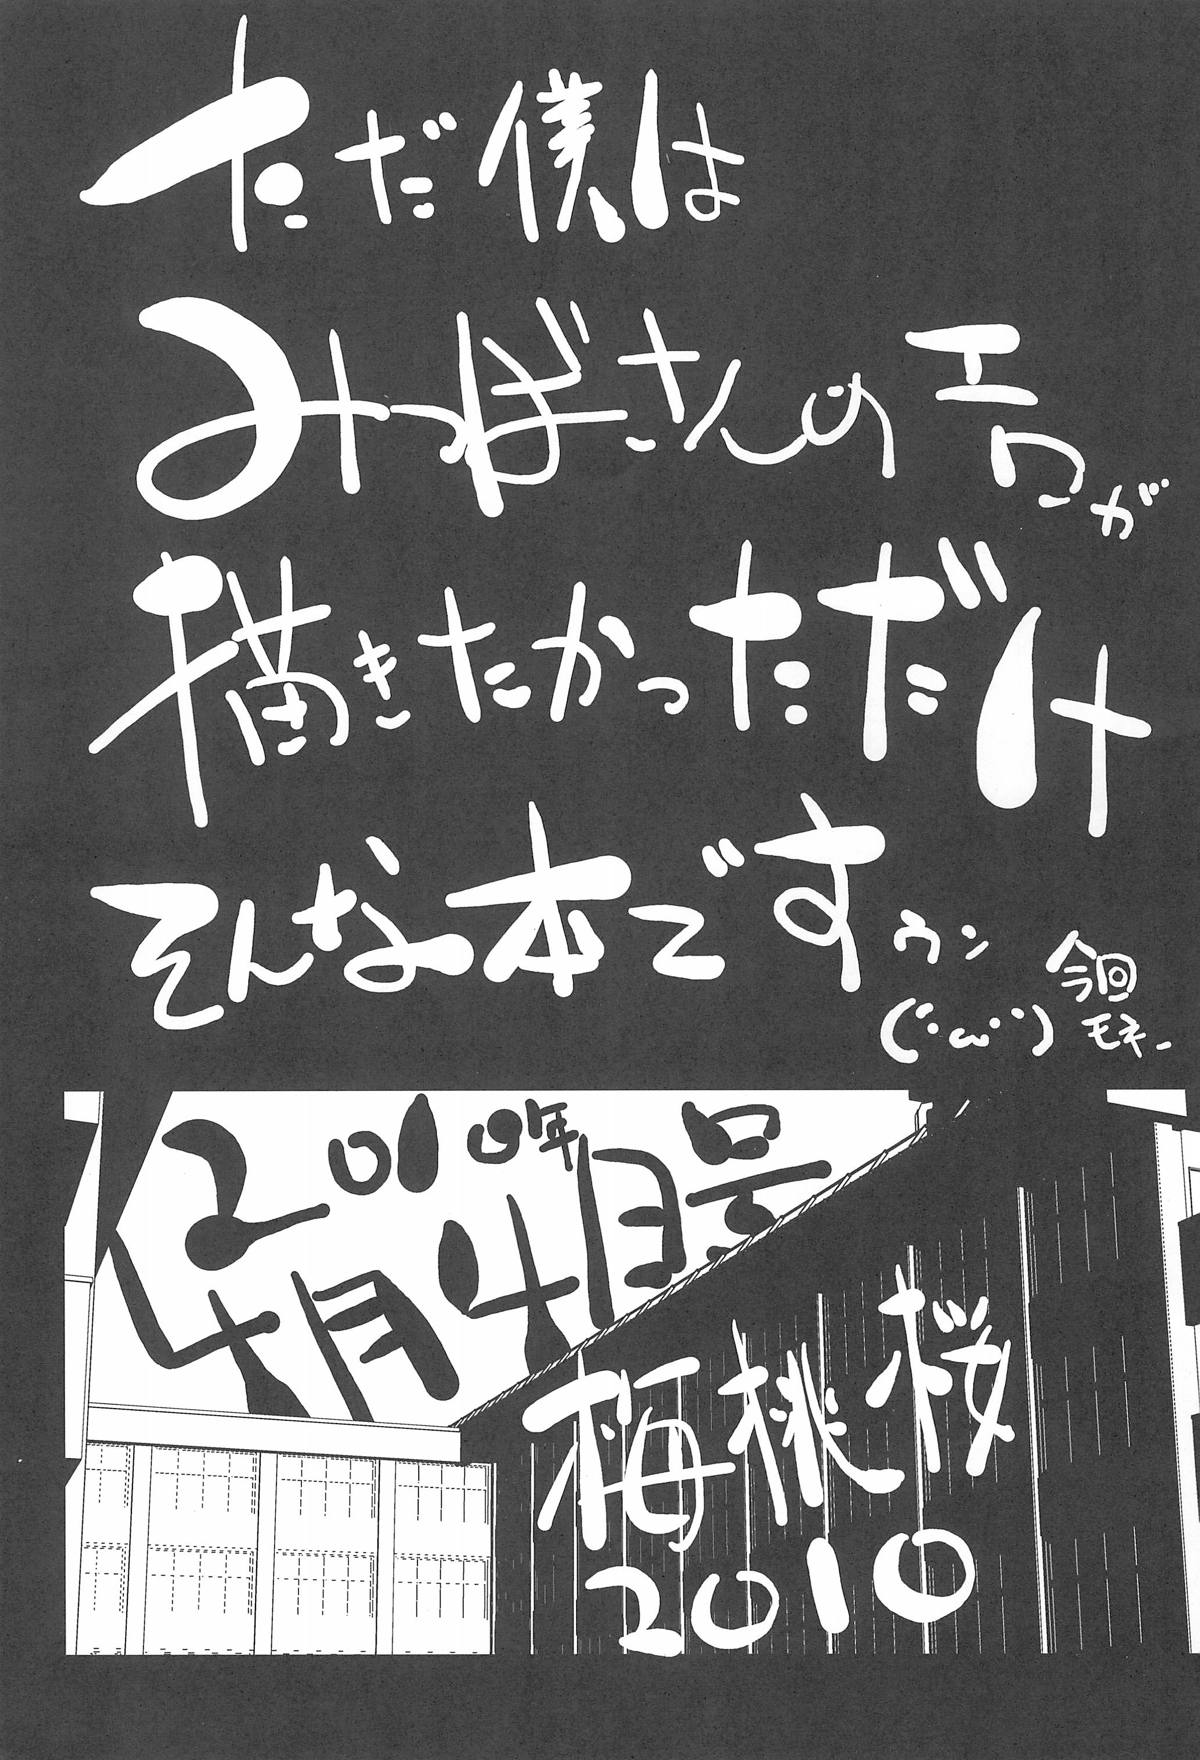 ただ僕は
みつばさんのエロが
描きたかっただけ
そんな本です
ウン
(´・ω・｀)
今回
モネー
2010年
4月号
梅桃桜
2010